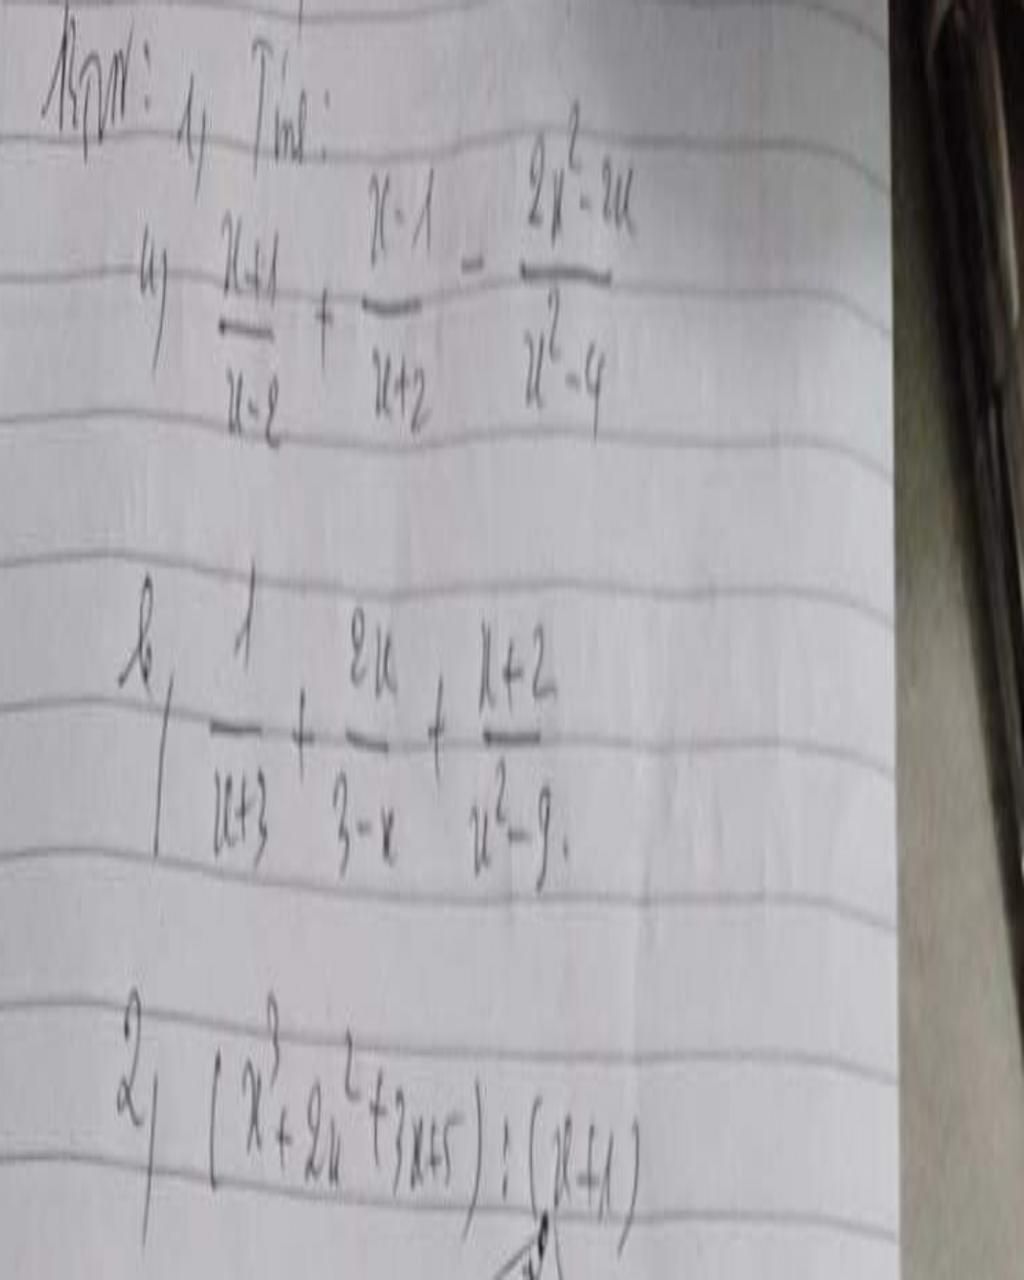 1) Tính:
a) (x+1)/(x-2) + (x-1)/(x+2) - (2x²-2x)/(x²-4)
b) 1/(x+3) + 2x/(3-x) + (x+2)/(x²-9).
2) (x³+2x²+3x+5) : (x+1)